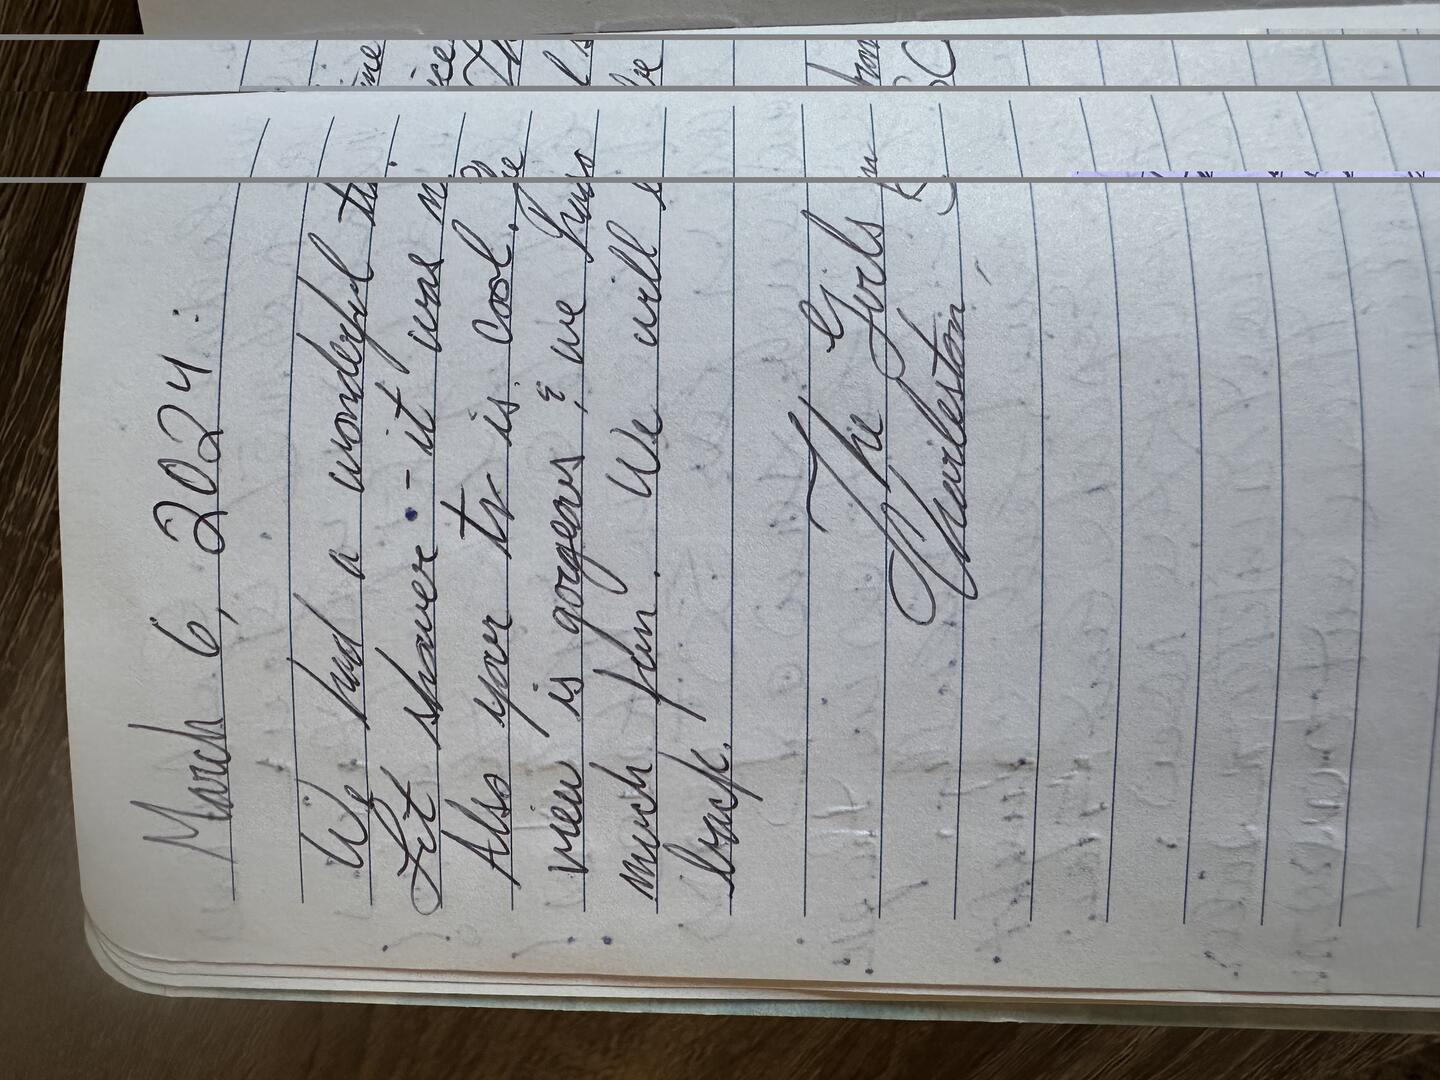 March 6, 2024:
We had a wonderful time
Lit shower - it was nice
Also your tv is cool. The
view is gorgeous & we
much fun. We will be
back.
The Girls from
Charleston, SC